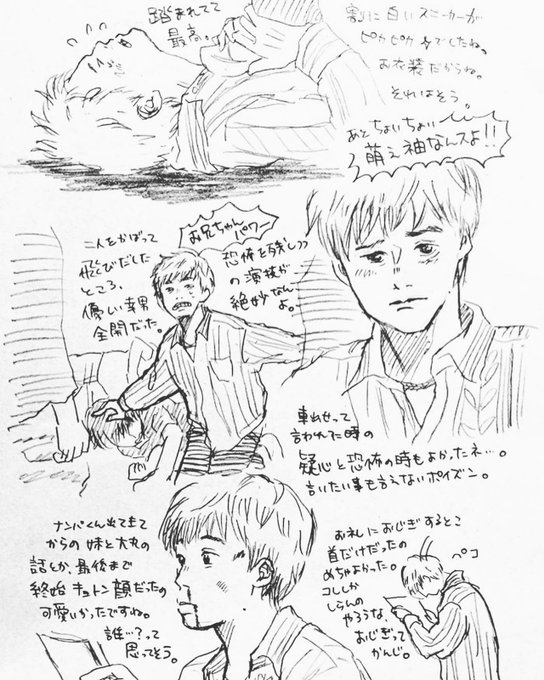 割に白いスニーカーが
ピカピカでしたね。
お衣装だからね。
それはそう。
あとちょいちょい
萌え袖なんスよ!!
踏まれてて
最高。
お兄ちゃん
パワー
恐怖を残しつつ
の演技が
絶妙なん
よ。
二人をかばって
飛びだした
ところ、
優しい幸男
全開だった。
車出せって
言われてた時の
疑心と恐怖の時もよかったネ…。
言いたい事も言えないポイズン。
ナンパくん出てきて
からの妹と大丸の
話とか、最後まで
終始キョトン顔だったの
可愛いかったですね。
誰…?って
思ってそう。
お礼におじぎするとこ
首だけだったの
めちゃよかった。
コレしか
しらんの
やろうな、
おじぎって
かんじ。
ペコ